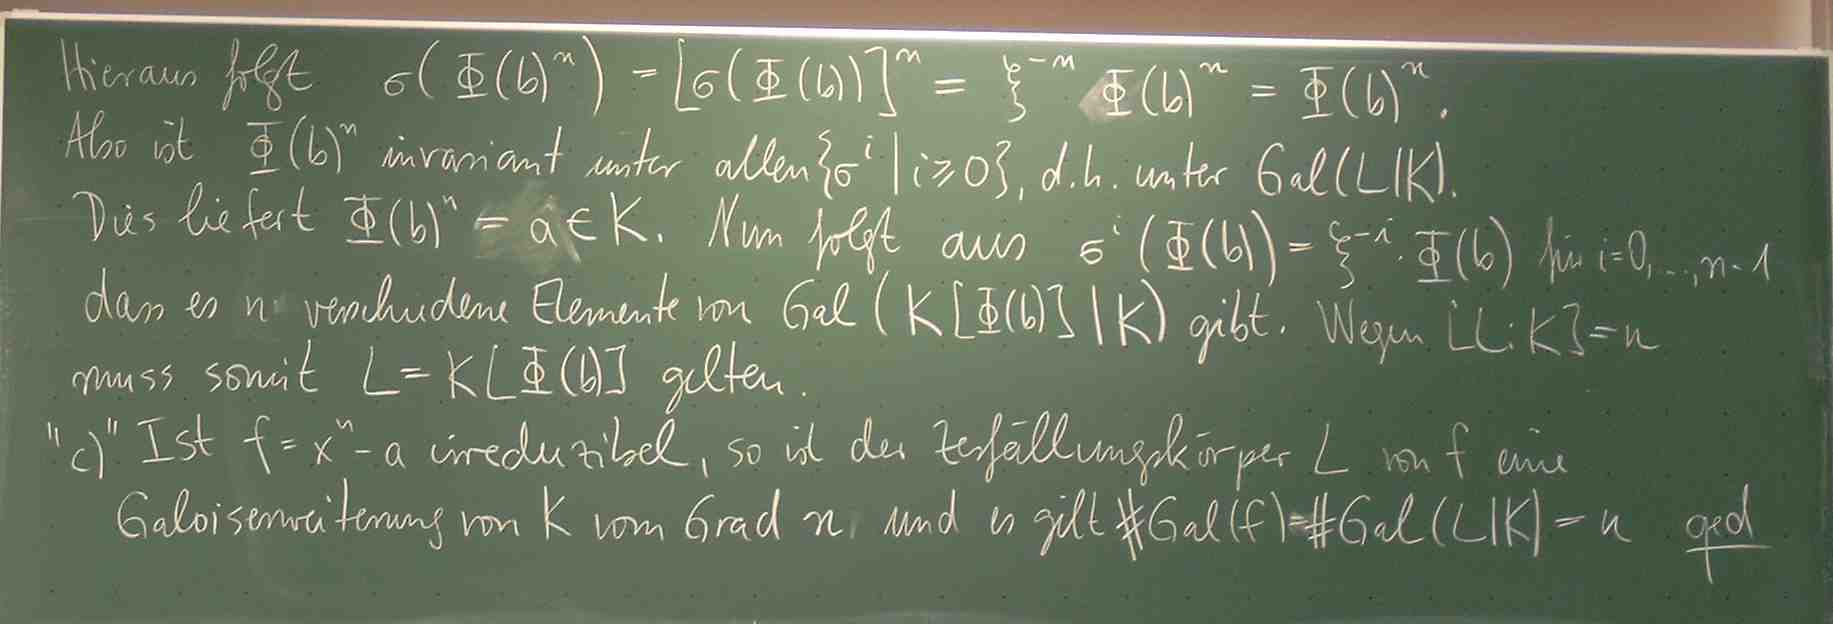 Hieraus folgt σ(Φ(b)ⁿ) = [σ(Φ(b))]ⁿ = ξ⁻ⁿ Φ(b)ⁿ = Φ(b)ⁿ.
Also ist Φ(b)ⁿ invariant unter allen {σⁱ | i ≥ 0}, d.h. unter Gal(L|K).
Dies liefert Φ(b)ⁿ = a ∈ K. Nun folgt aus σⁱ(Φ(b)) = ξ⁻ⁱ·Φ(b) für i=0,...,n-1
dass es n verschiedene Elemente von Gal(K[Φ(b)]|K) gibt. Wegen [L:K]=n
muss somit L = K[Φ(b)] gelten.
"c)" Ist f = xⁿ-a irreduzibel, so ist der Zerfällungskörper L von f eine
Galoiserweiterung von K vom Grad n, und es gilt #Gal(f)=#Gal(L|K) = n qed